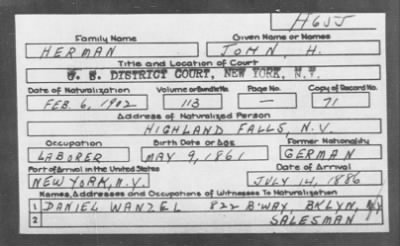 H655
Family Name Given Name or Names
HERMAN JOHN, H.
Title and Location of Court
U. S. DISTRICT COURT, NEW YORK, N.Y.
Date of Naturalization Volume or Bundle No. Page No. Copy of Record No.
FEB. 6, 1902 113 — 71
Address of Naturalized Person
HIGHLAND FALLS, N.Y.
Occupation Birth Date or Age Former Nationality
LABORER MAY 9, 1861 GERMAN
Port of Arrival in the United States Date of Arrival
NEW YORK, N.Y. JULY 14, 1886
Names, Addresses and Occupations of Witnesses To Naturalization
1 DANIEL WANZEL 822 B'WAY BKLYN, N.Y.
2 SALESMAN